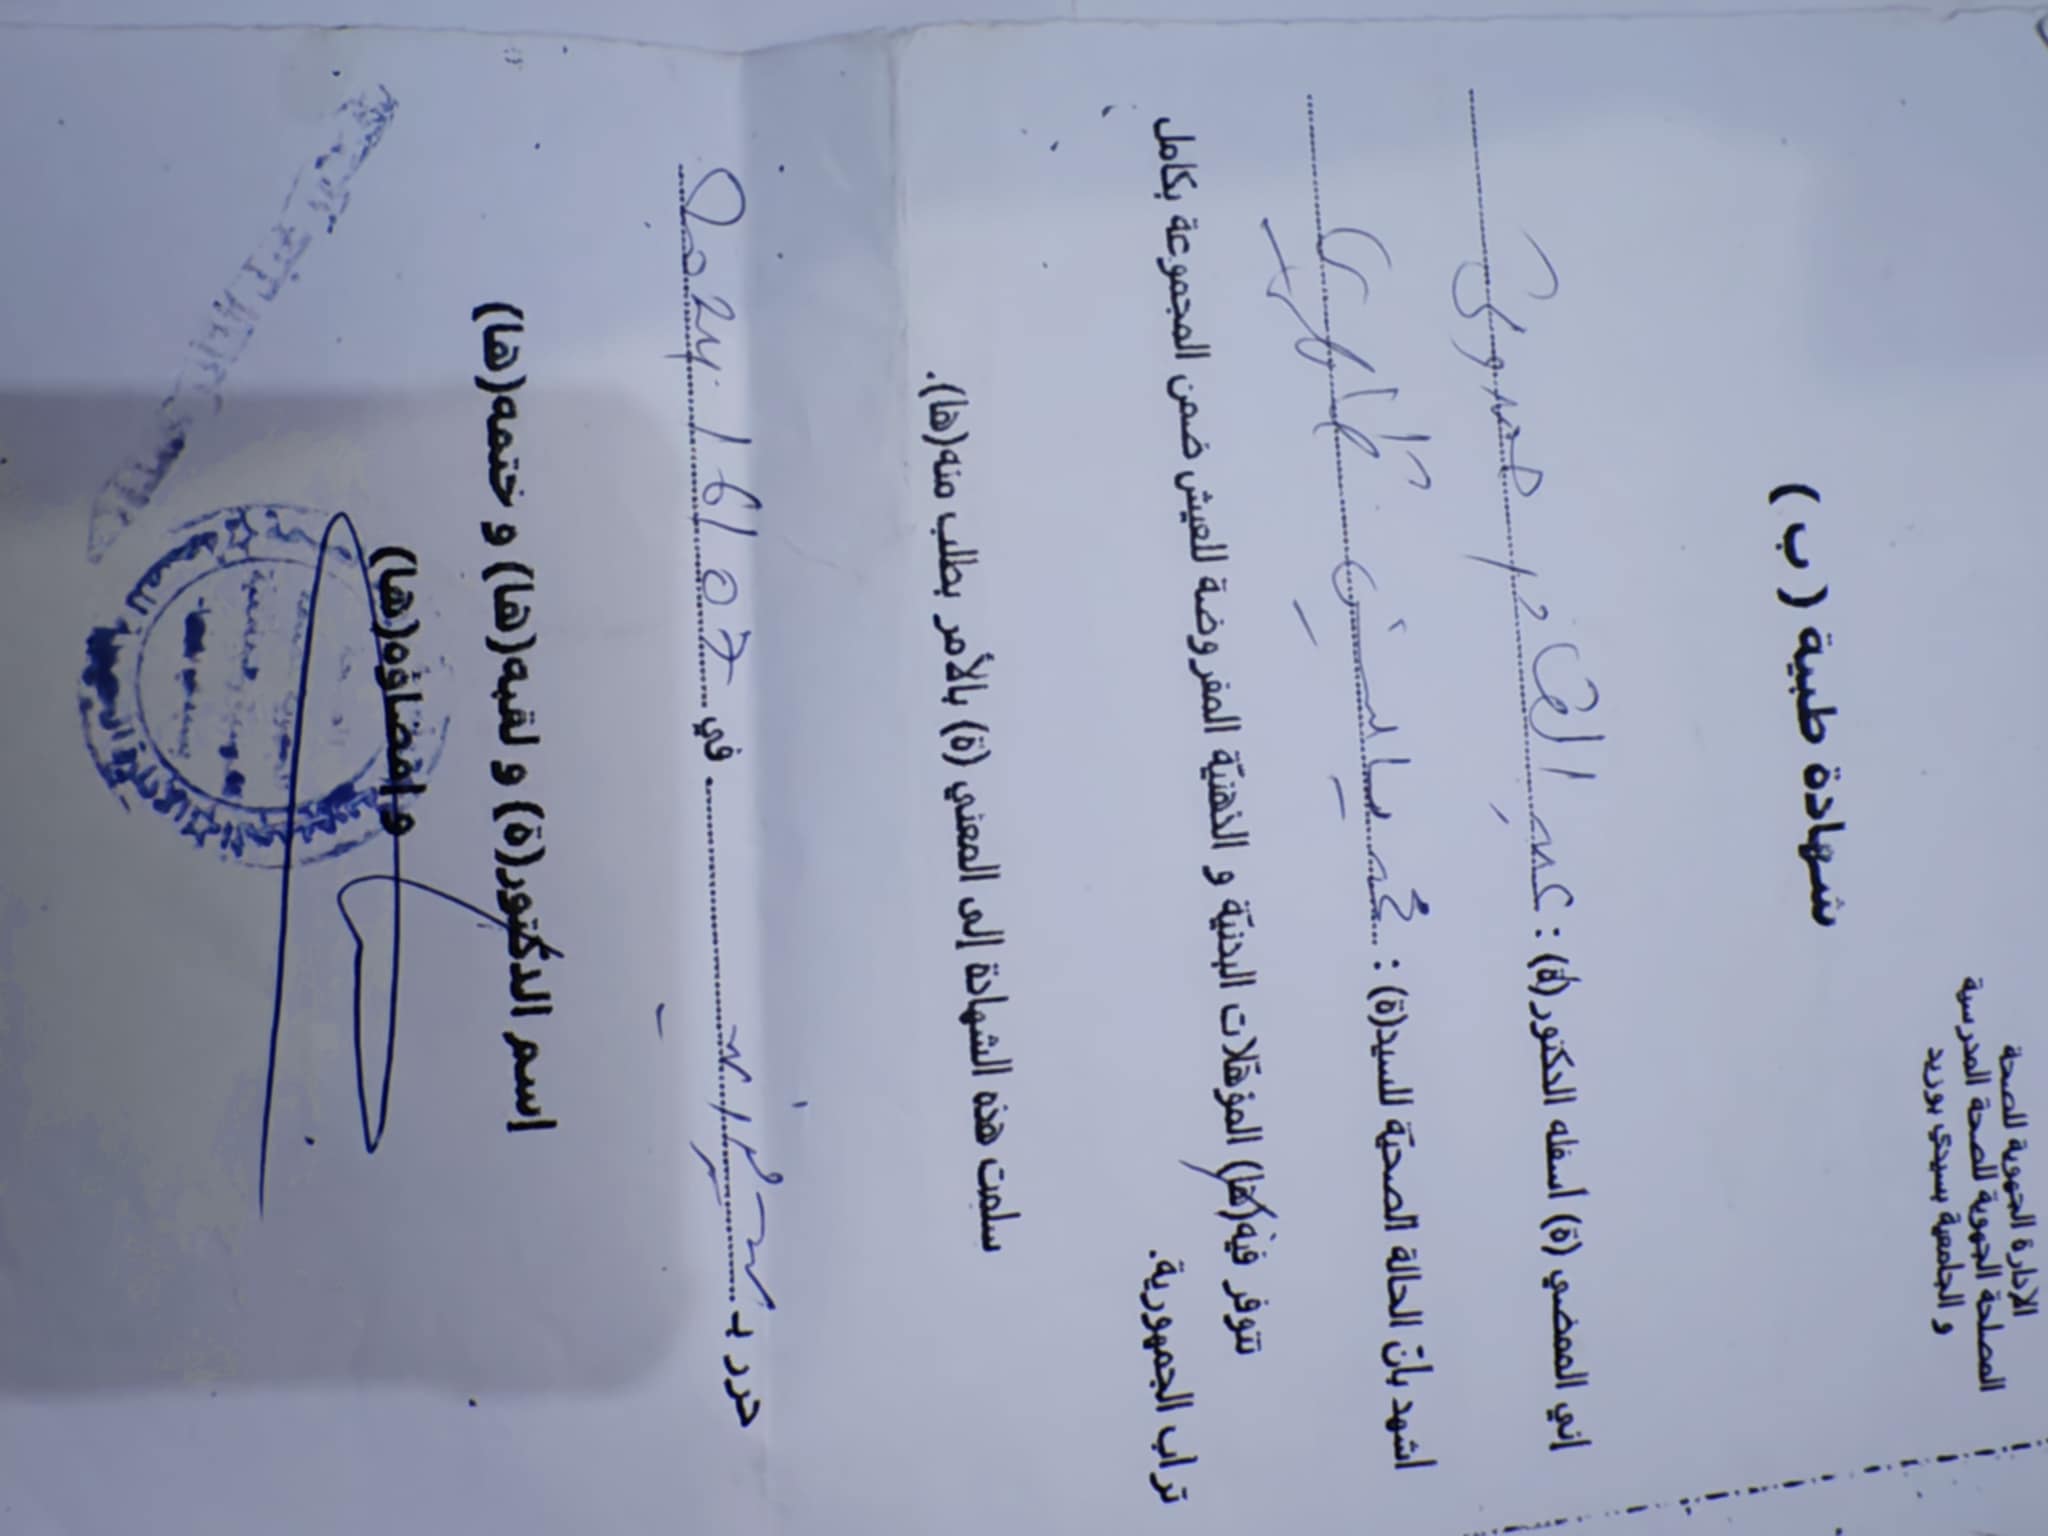 الإدارة الجهوية للصحة
المصلحة الجهوية للصحة المدرسية
و الجامعية بسيدي بوزيد
شهادة طبية ( ب )
إني الممضي (ة) أسفله الدكتور(ة) : عبد القادر
أشهد بأن الحالة الصحيّة للسيد(ة) : محمد ياسين
تتوفر فيه(ها) المؤهّلات البدنيّة و الذهنيّة المفروضة للعيش ضمن المجموعة بكامل
تراب الجمهورية.
سلمت هذه الشهادة إلى المعني (ة) بالأمر بطلب منه(ها).
حرر بـ في
إسم الدكتور(ة) و لقبه(ها) و ختمه(ها)
و إمضاؤه(ها)